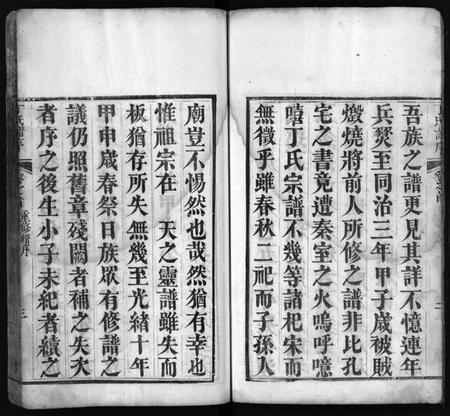 吾族之譜更見其詳不憶連年
兵燹至同治三年甲子歲被賊
燬燒將前人所修之譜非比孔
宅之書竟遭秦室之火嗚呼噫
嘻丁氏宗譜不幾等諸杞宋而
無徵乎雖春秋二祀而子孫入
廟豈不惕然也哉然猶有幸也
惟祖宗在 天之靈譜雖失而
板猶存所失無幾至光緒十年
甲申歲春祭日族眾有修譜之
議仍照舊章殘闕者補之失次
者序之後生小子未紀者續之
重修譜序
三